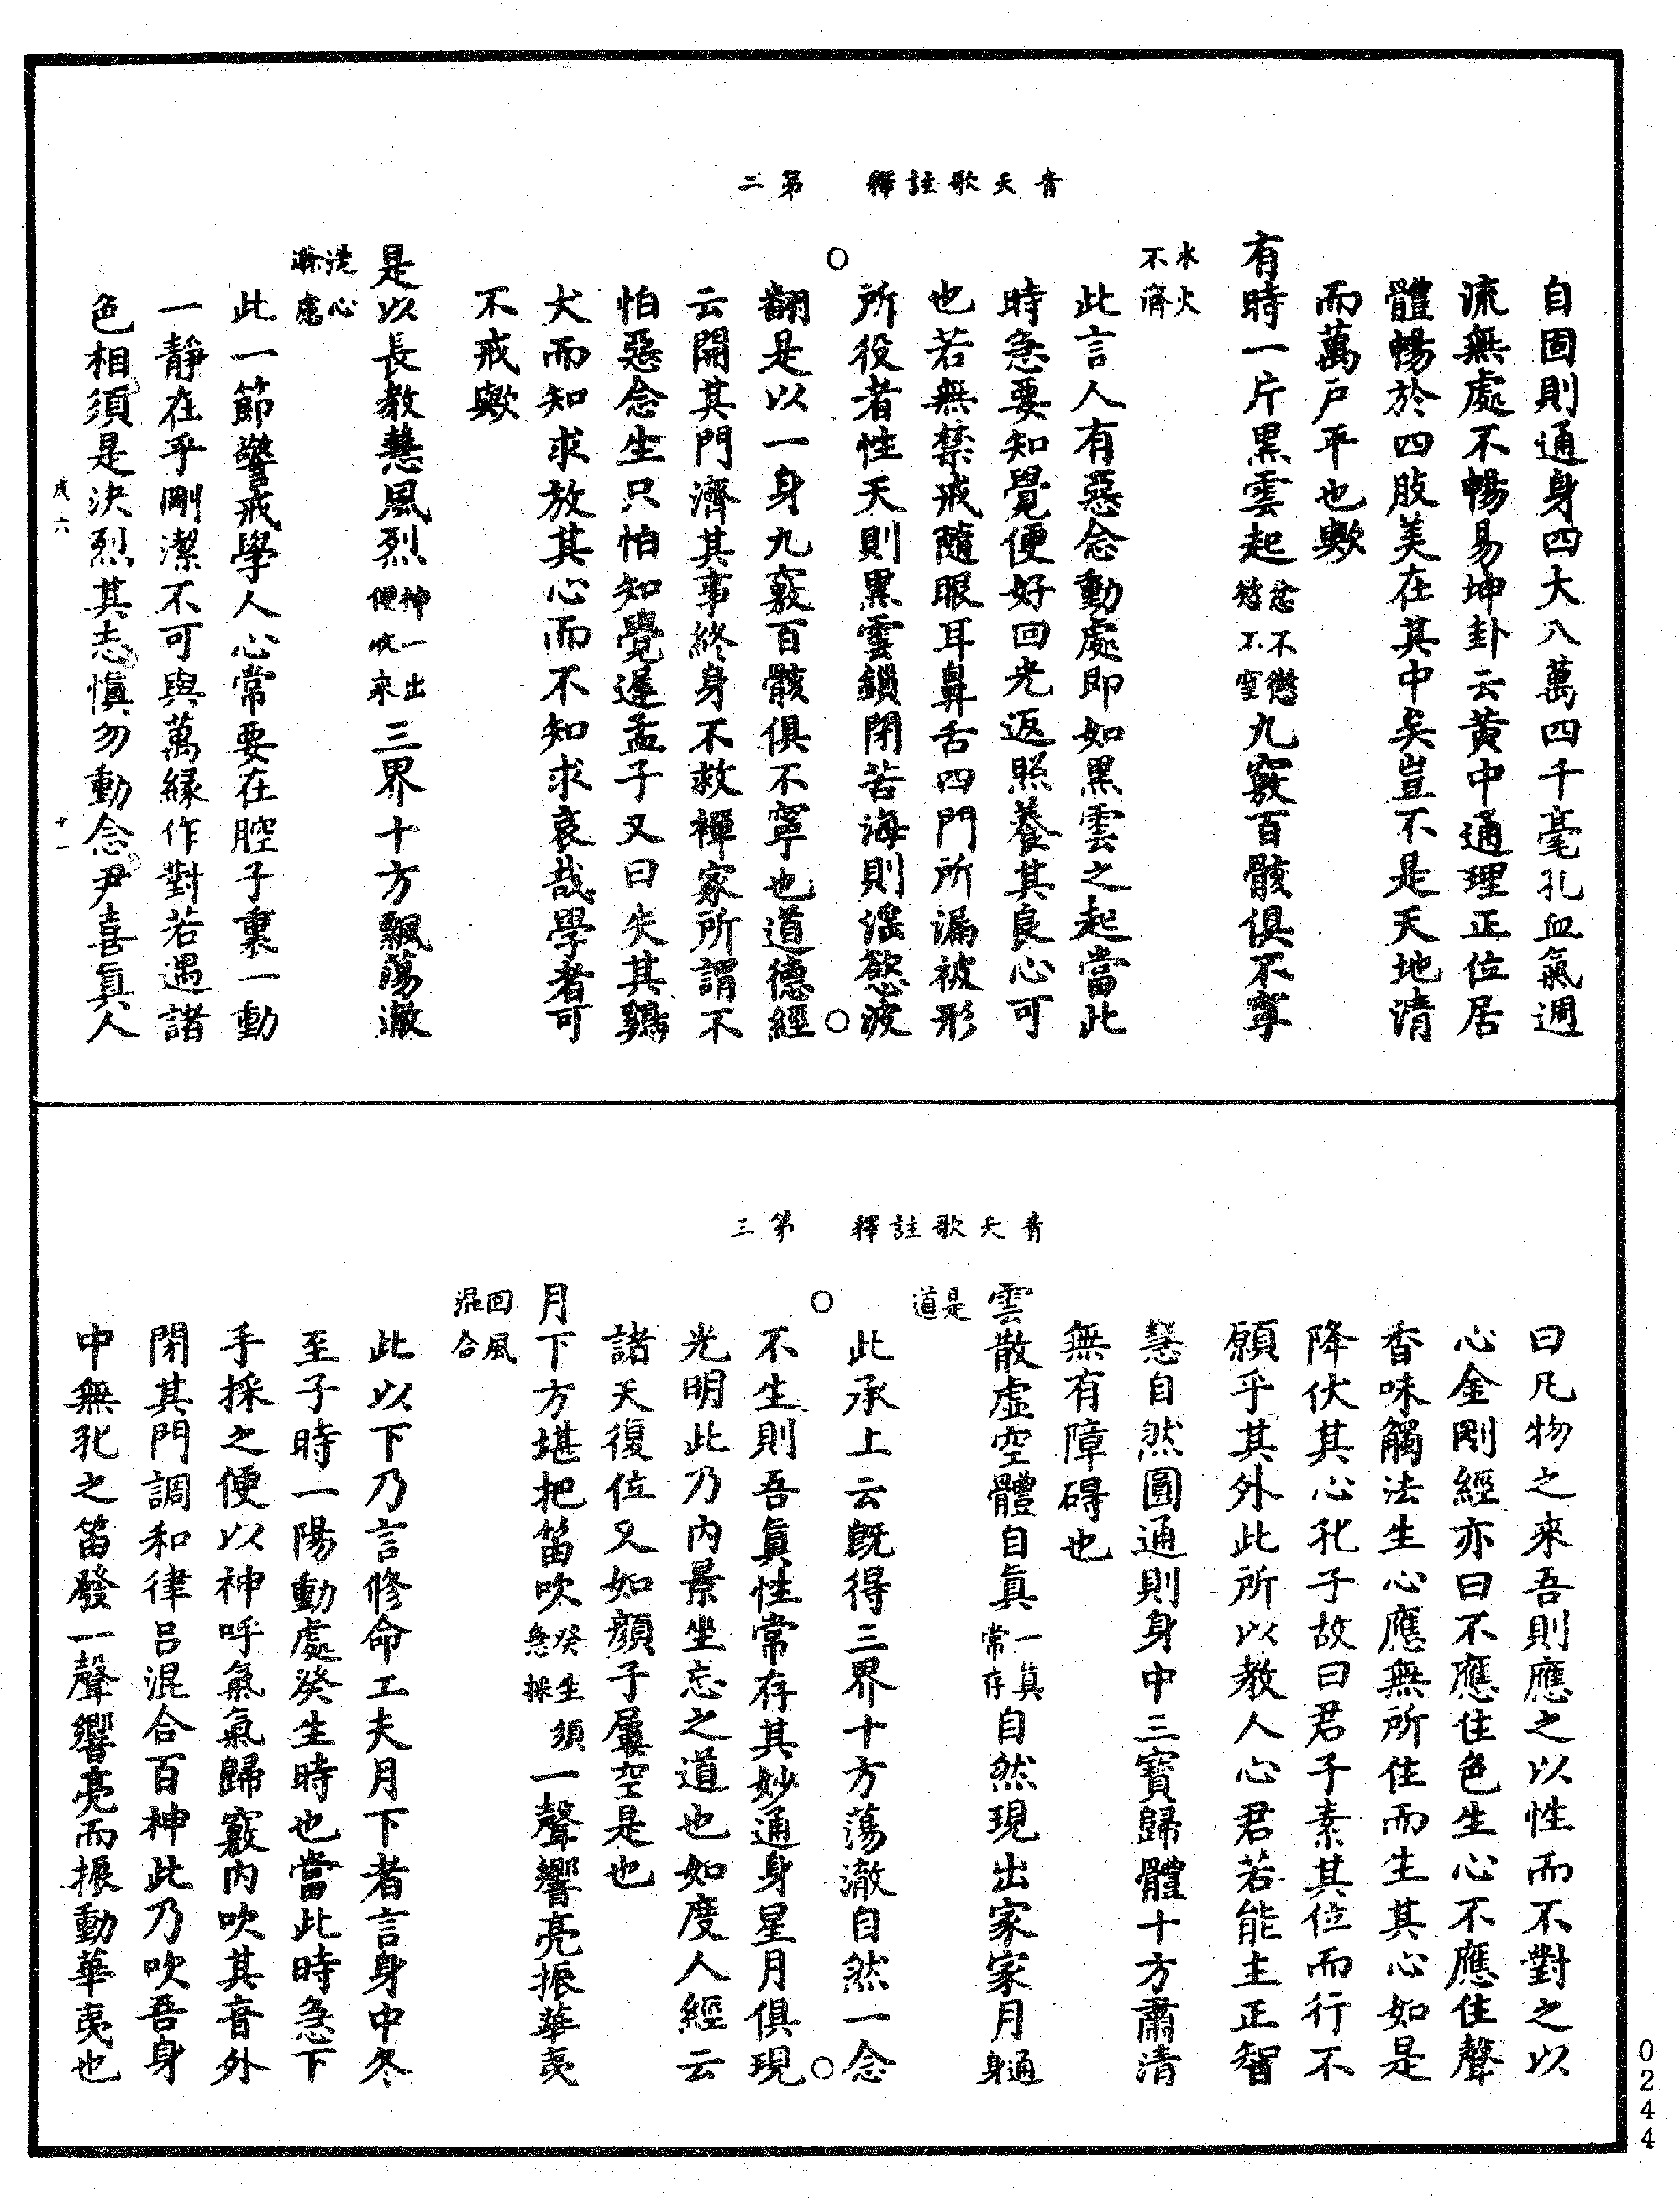 青天歌註釋　第三
自固則通身四大八萬四千毫孔血氣週
流無處不暢易坤卦云黃中通理正位居
體暢於四肢美在其中矣豈不是天地清
而萬戶平也歟
有時一片黑雲起忿不懲慾不窒九竅百骸俱不寧
水火不濟
此言人有惡念動處即如黑雲之起當此
時急要知覺便好回光返照養其良心可
也若無禁戒隨眼耳鼻舌四門所漏被形
所役者性天則黑雲鎖閉苦海則滛慾波
翻是以一身九竅百骸俱不寧也道德經
云開其門濟其事終身不救禪家所謂不
怕惡念生只怕知覺遲孟子又曰失其鷄
犬而知求放其心而不知求哀哉學者可
不戒歟
是以長教慧風烈神一出便收來三界十方飄蕩澈
洗心滌慮
此一節警戒學人心常要在腔子裏一動
一靜在乎剛潔不可與萬緣作對若遇諸
色相須是決烈其志慎勿動念尹喜眞人
成六
十一
青天歌註釋　第三
曰凡物之來吾則應之以性而不對之以
心金剛經亦曰不應住色生心不應住聲
香味觸法生心應無所住而生其心如是
降伏其心孔子故曰君子素其位而行不
願乎其外此所以教人心君若能主正智
慧自然圓通則身中三寶歸體十方肅清
無有障碍也
雲散虛空體自眞一眞常存自然現出家家月通身
是道
此承上云旣得三界十方蕩澈自然一念
不生則吾眞性常存其妙通身星月俱現
光明此乃內景坐忘之道也如度人經云
諸天復位又如顏子屢空是也
月下方堪把笛吹癸生須急採一聲響亮振華夷
回風混合
此以下乃言修命工夫月下者言身中冬
至子時一陽動處癸生時也當此時急下
手採之便以神呼氣氣歸竅內吹其音外
閉其門調和律呂混合百神此乃吹吾身
中無孔之笛發一聲響亮而振動華夷也
0244